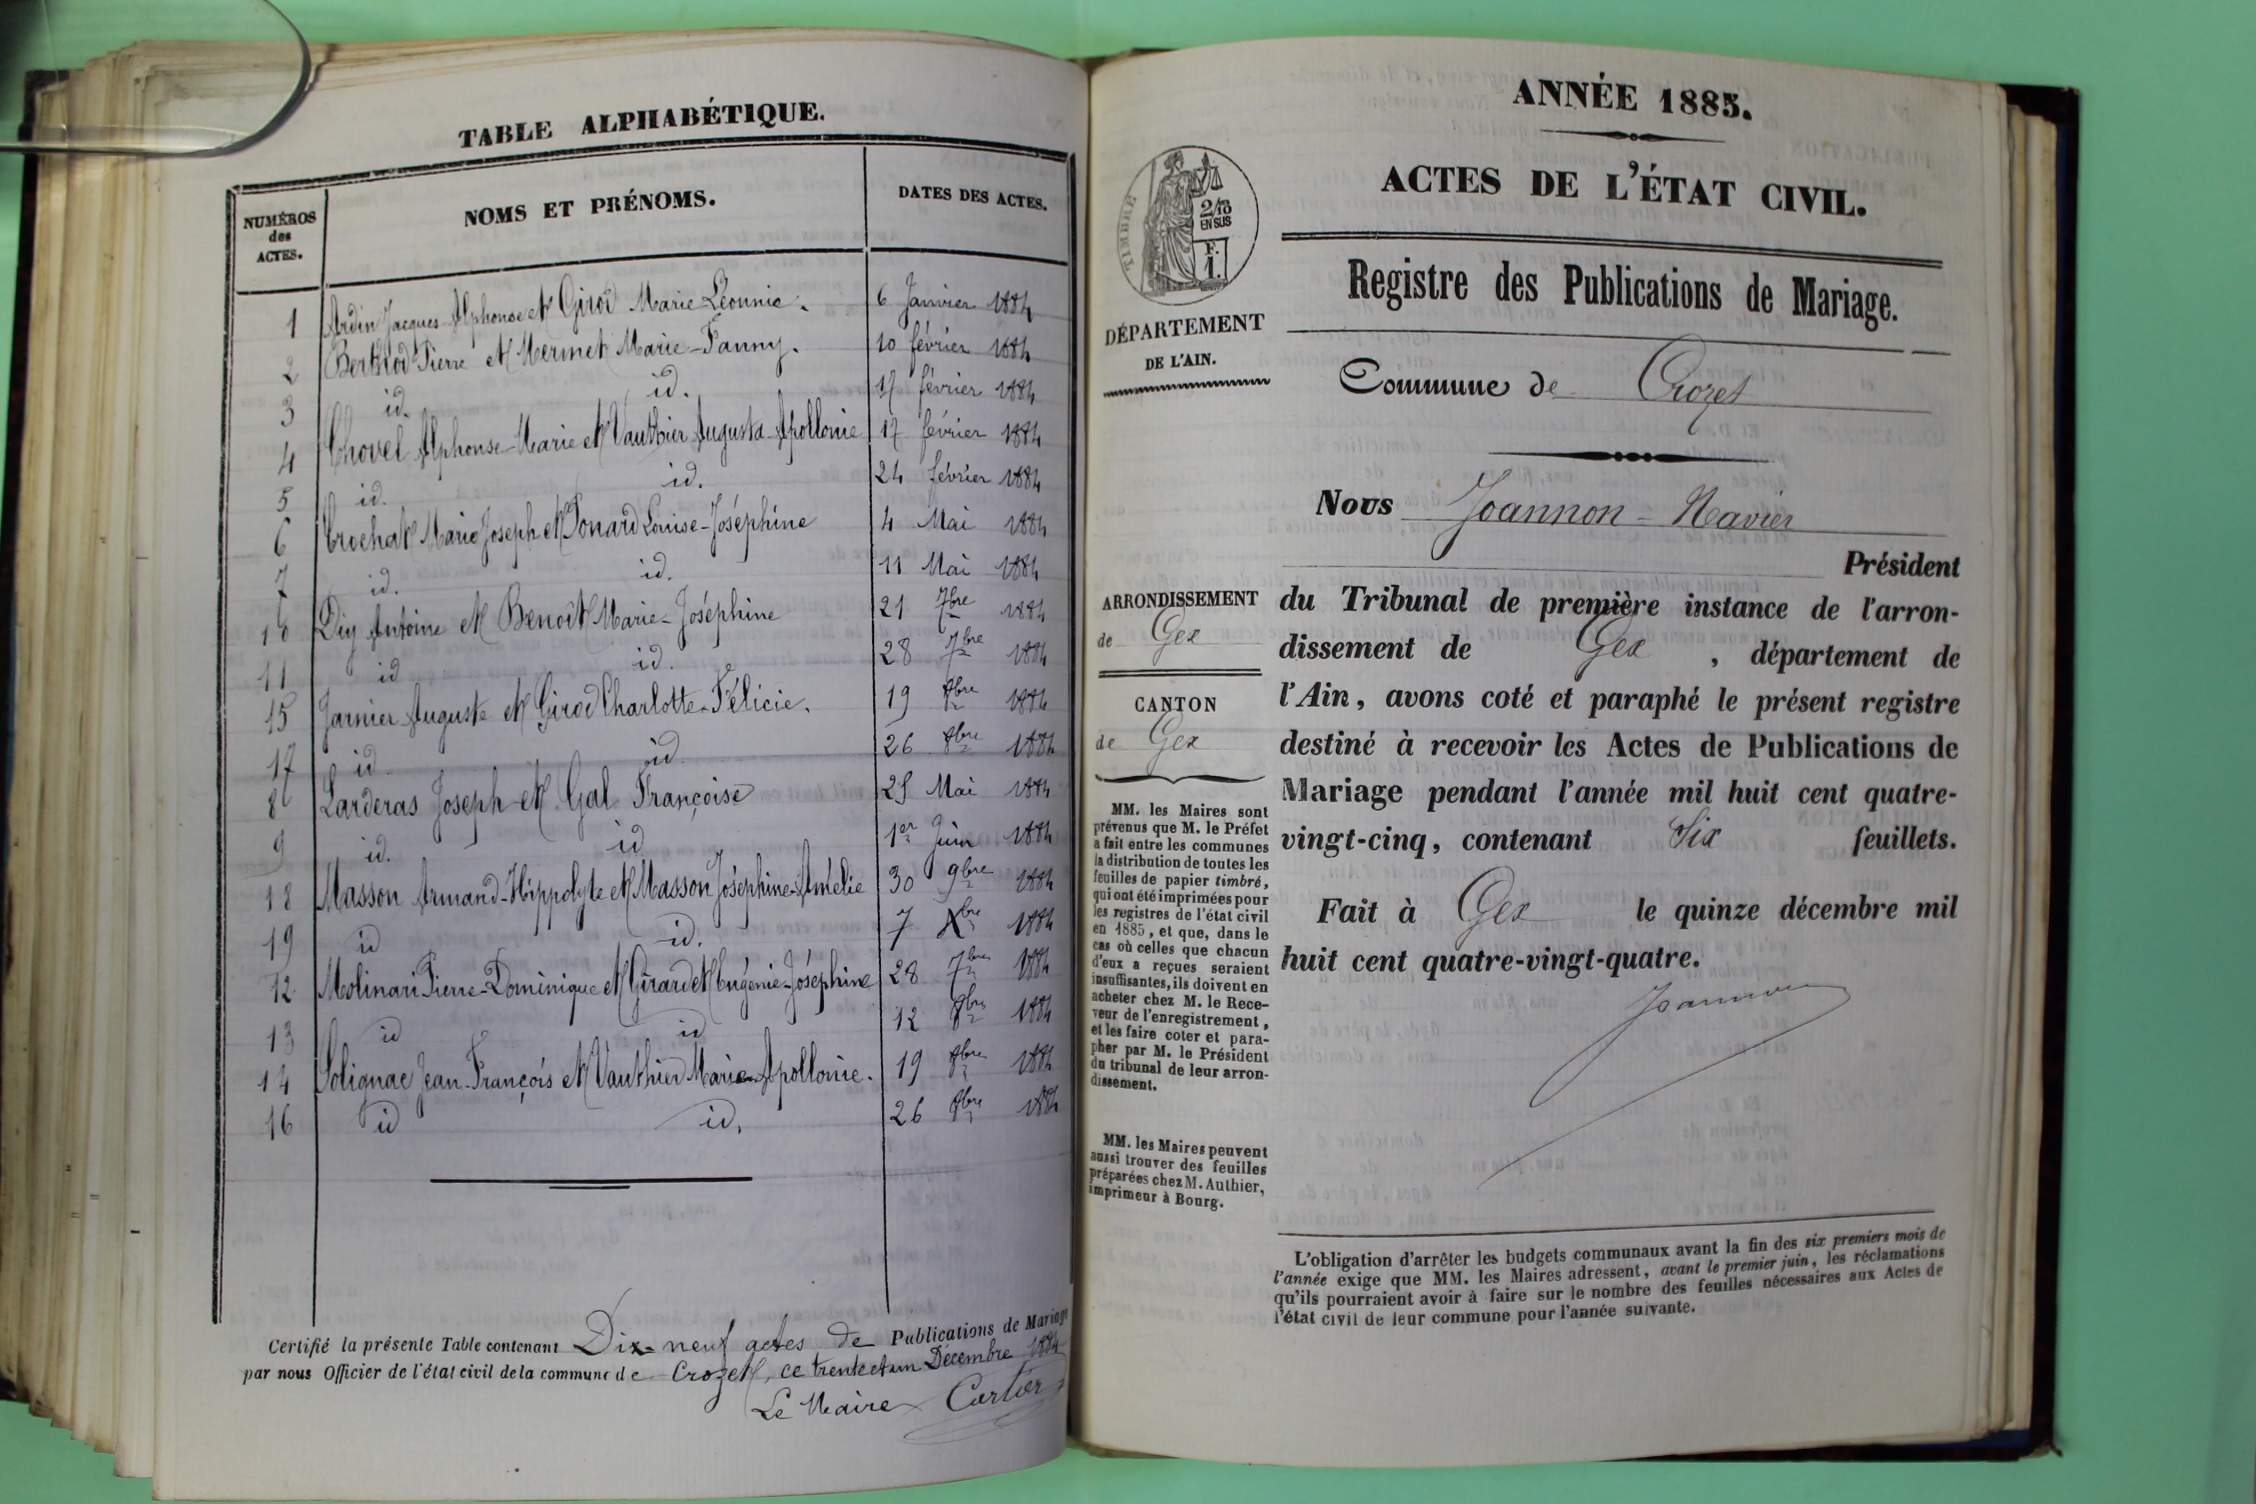 TABLE ALPHABÉTIQUE.
NUMÉROS des ACTES. NOMS ET PRÉNOMS. DATES DES ACTES.
1 Ardin Jacques-Alphonse et Girod Marie Léonnie. 6 Janvier 1884
2 Berthod Pierre et Mermet Marie-Fanny. 10 février 1884
3 id. id. 17 février 1884
4 Chovel Alphonse-Marie et Vauthier Augusta-Apollonie 17 février 1884
5 id. id. 24 février 1884
6 Crochat Marie Joseph et Ponard Louise-Joséphine 4 Mai 1884
7 id. id. 11 Mai 1884
10 Diy Antoine et Benoît Marie-Joséphine 21 7bre 1884
11 id id. 28 7bre 1884
15 Garnier Auguste et Girod Charlotte-Félicie. 19 8bre 1884
17 id id 26 8bre 1884
8 Larderas Joseph et Gal Françoise 25 Mai 1884
9 id. id 1er Juin 1884
18 Masson Armand-Hippolyte et Masson Joséphine-Amélie 30 9bre 1884
19 id id. 7 Xbre 1884
12 Molinari Pierre-Dominique et Girardet Eugénie-Joséphine 28 7bre 1884
13 id id 12 8bre 1884
14 Solignac Jean-François et Vauthier Marie-Apollonie. 19 8bre 1884
16 id id. 26 8bre 1884
Certifié la présente Table contenant Dix-neuf actes de Publications de Mariage
par nous Officier de l'état civil de la commune de Crozet, ce trente et un Décembre 1884
Le Maire Cartier
ANNÉE 1885.
ACTES DE L'ÉTAT CIVIL.
TIMBRE
2/10
EN SUS
F.
1.
DÉPARTEMENT
DE L'AIN.
Registre des Publications de Mariage.
Commune de Crozet
Nous Joannon-Navier
Président
du Tribunal de première instance de l'arron-
dissement de Gex, département de
l'Ain, avons coté et paraphé le présent registre
destiné à recevoir les Actes de Publications de
Mariage pendant l'année mil huit cent quatre-
vingt-cinq, contenant Six feuillets.
Fait à Gex le quinze décembre mil
huit cent quatre-vingt-quatre.
Joannon
ARRONDISSEMENT
de Gex
CANTON
de Gex
MM. les Maires sont
prévenus que M. le Préfet
a fait entre les communes
la distribution de toutes les
feuilles de papier timbré,
qui ont été imprimées pour
les registres de l'état civil
en 1885, et que, dans le
cas où celles que chacun
d'eux a reçues seraient
insuffisantes, ils doivent en
acheter chez M. le Rece-
veur de l'enregistrement,
et les faire coter et para-
pher par M. le Président
du tribunal de leur arron-
dissement.
MM. les Maires peuvent
aussi trouver des feuilles
préparées chez M. Authier,
imprimeur à Bourg.
L'obligation d'arrêter les budgets communaux avant la fin des six premiers mois de
l'année exige que MM. les Maires adressent, avant le premier juin, les réclamations
qu'ils pourraient avoir à faire sur le nombre des feuilles nécessaires aux Actes de
l'état civil de leur commune pour l'année suivante.